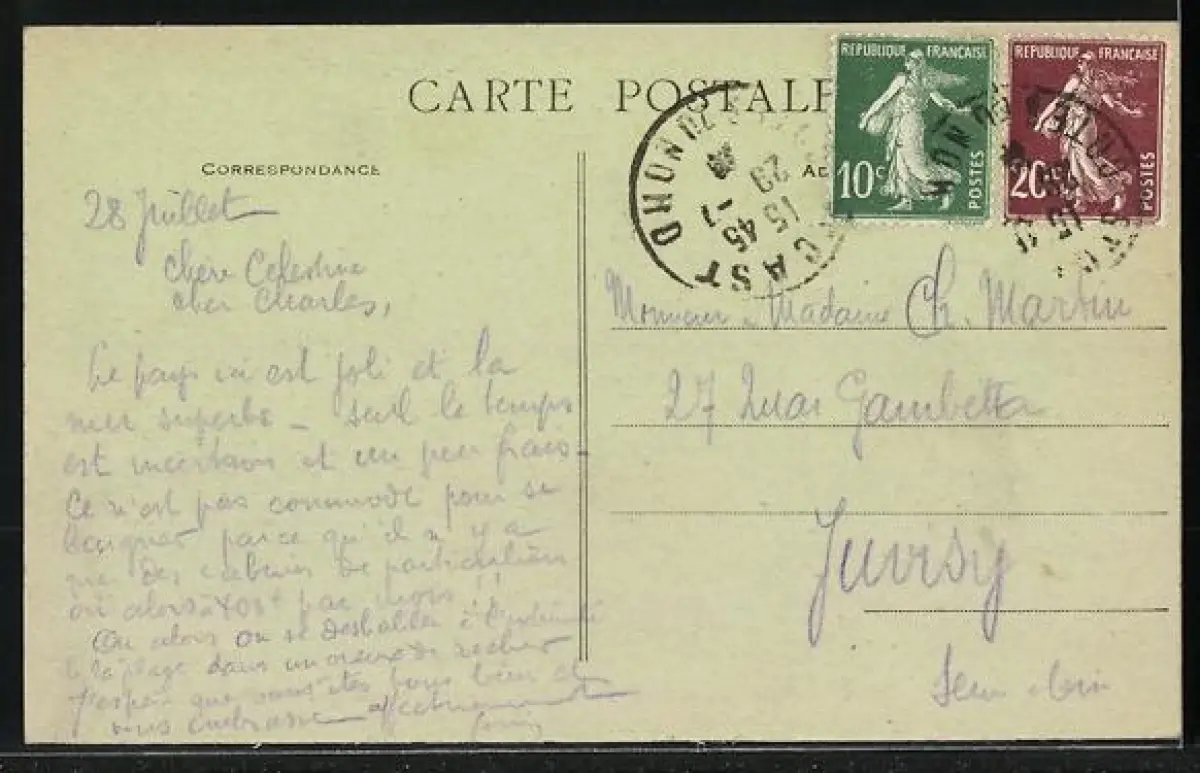 CARTE POSTALE
RÉPUBLIQUE FRANÇAISE
10c
POSTES
RÉPUBLIQUE FRANÇAISE
20c
POSTES
CAST
29
15 45
CORRESPONDANCE
28 Juillet
Chère Celestine
cher Charles,
Le pays ici est joli et la
mer superbe _ seul le temps
est incertain et un peu frais _
Ce n'est pas commode pour se
baigner parce qu'il n'y a
que des cabines de particuliers
ou alors à par mois !!
Ou alors on se deshabille à
la plage dans un de rocher
J'espère que vous êtes tous bien et
vous embrasse affectueusement
Monsieur Madame Ch. Martin
27 Quai Gambetta
Juvisy
Seine